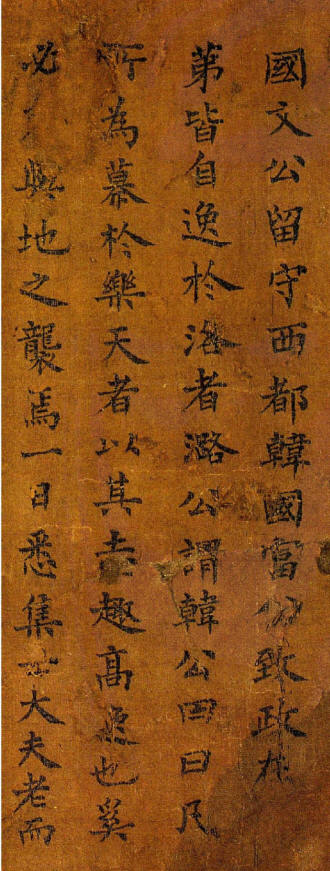 國文公留守西都韓國富公致政在
第皆自逸於洛者潞公謂韓公曰凡
所為慕於樂天者以其志趣高逸也奚
必與地之襲焉一旦悉集士大夫老而